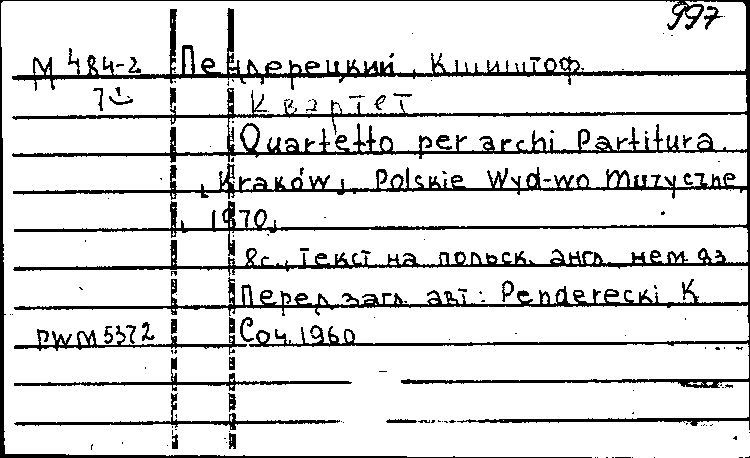 997
М 484-2 Пендерецкий, Кшиштоф.
Квартет
Quartetto per archi Partitura.
[Kraków], Polskie Wyd-wo Muzyczne,
[1970]
8с., Текст на польск. англ. нем яз
Перед загл. авт: Penderecki K
PWM 5372 Соч. 1960